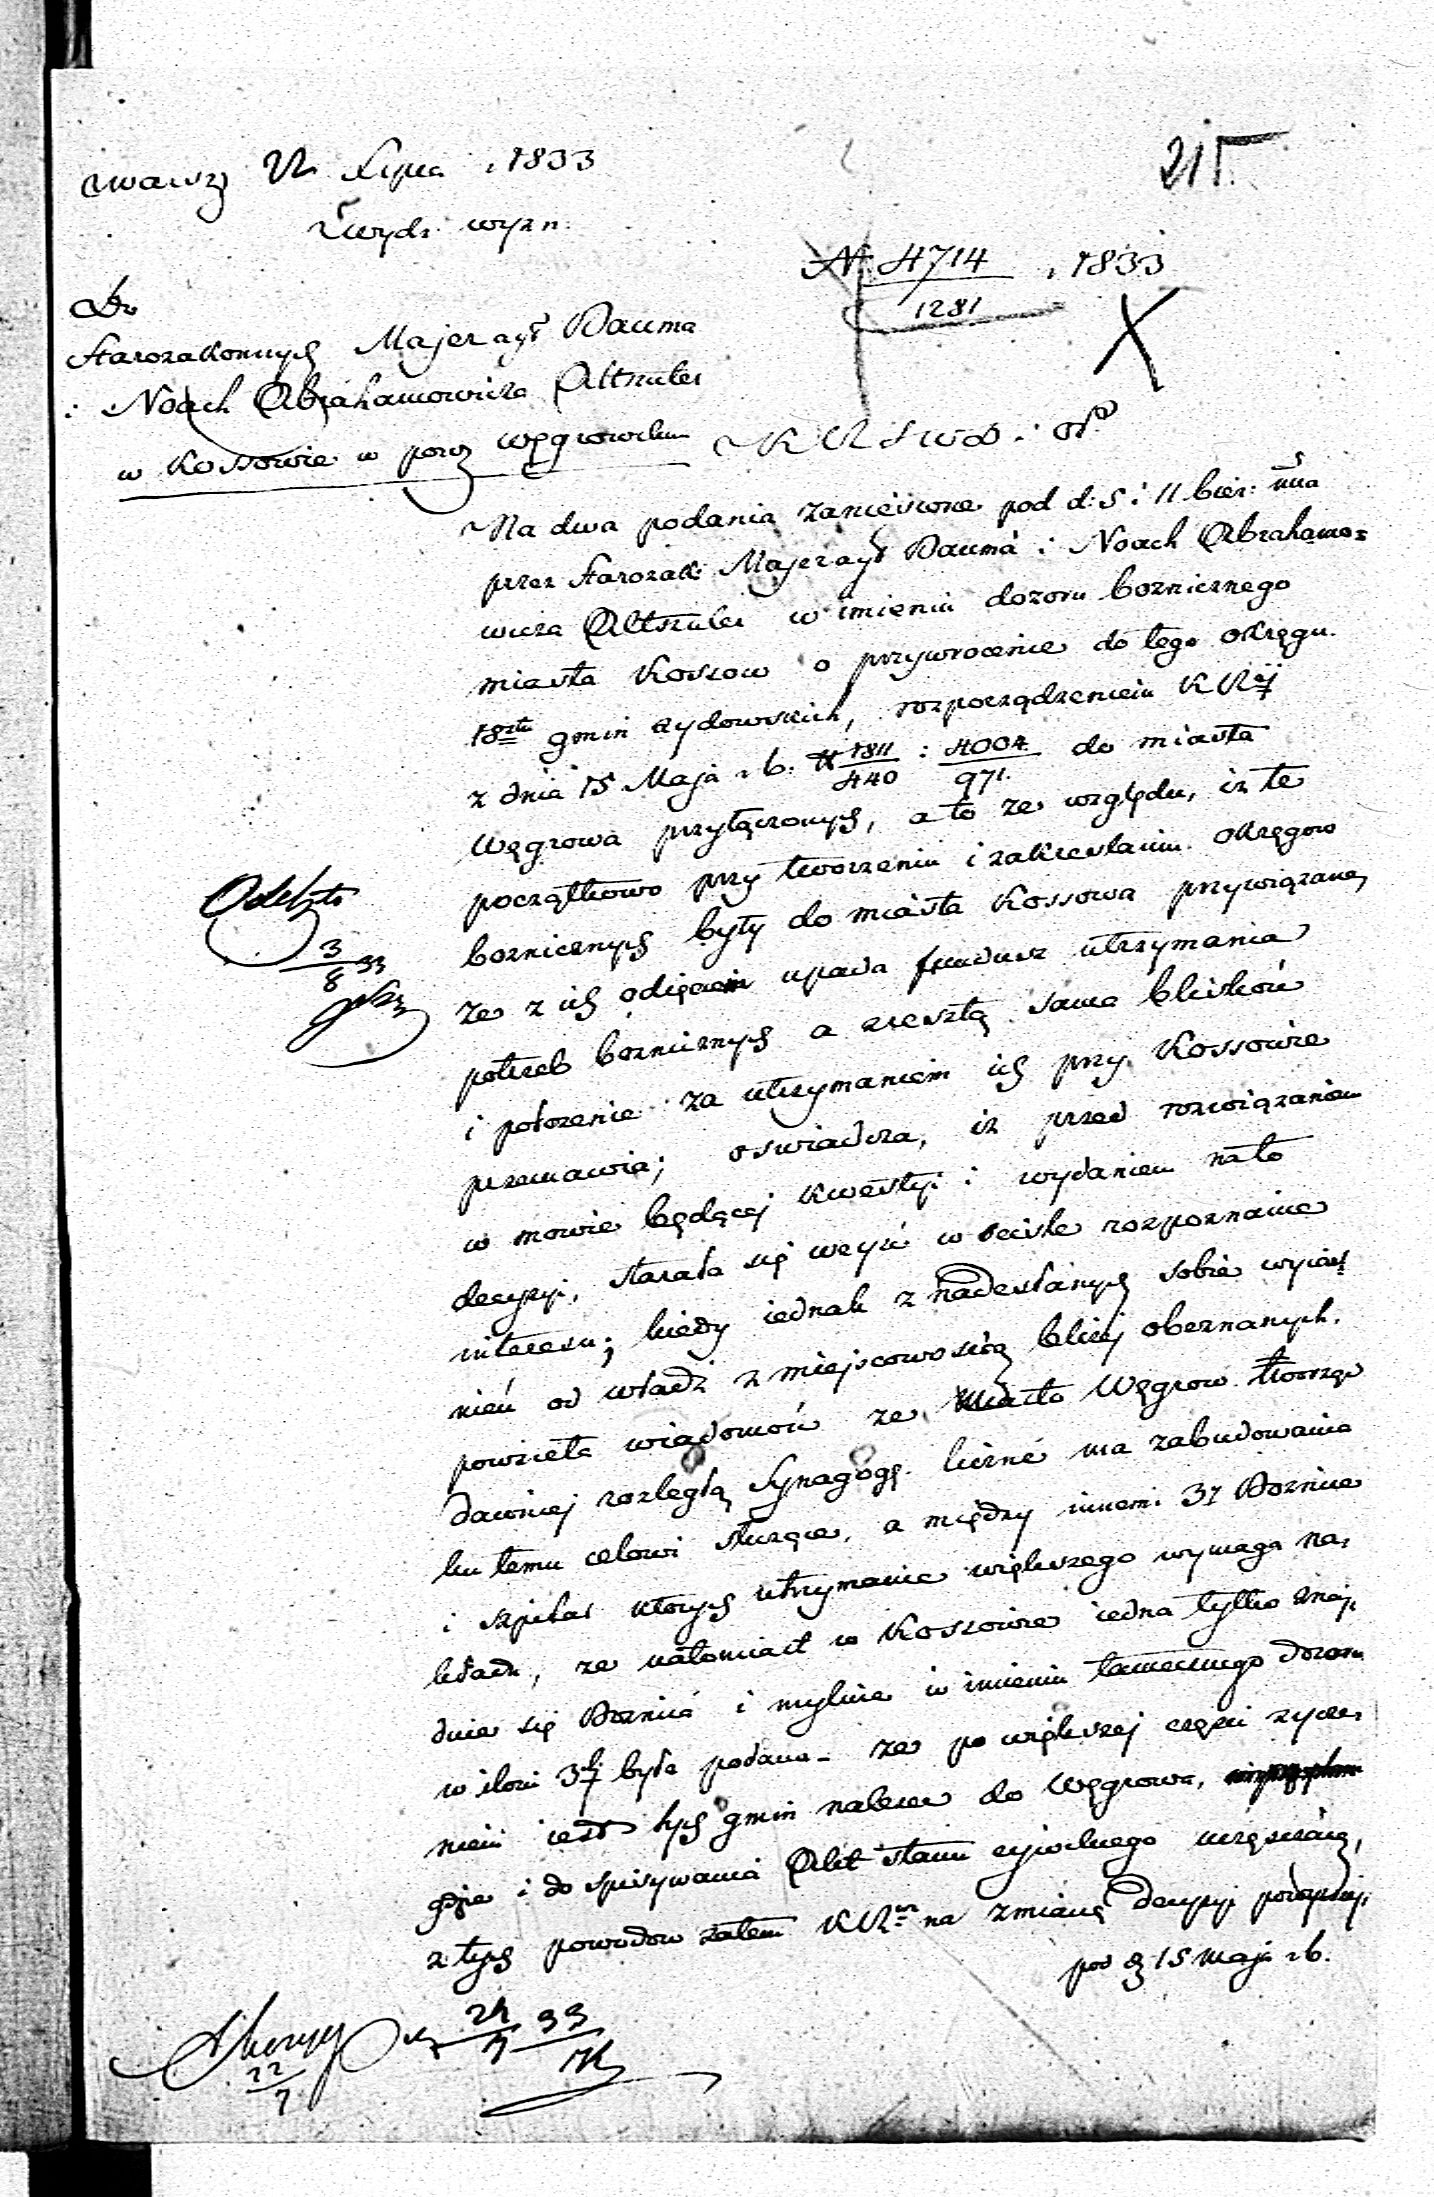 215
w Warsz 22 Lipca 1833
Wydz: wyzn:
N 4714 / 1281 1833
Do
Starozakonnych Majer Bauma
i Noach Abrahamowicza Altszuler
w Kossowie w pow Węgrowskim
KRSWD i OP
Na dwa podania zaniesione pod d: 5 i 11 bież: mca
przez Starozak: Majer Bauma i Noach Abrahamo=
wicza Altszuler w imieniu dozoru bożnicznego
miasta Kossow o przywrocenie do tego okręgu
18stu gmin żydowskich, rozporządzeniem KRej
z dnia 15 Maja r b. N 1811/440 i 4004/971 do miasta
Węgrowa przyłączonych, a to ze względu, iż te
początkowo przy tworzeniu i zakreslaniu okręgow
bożnicznych były do miasta Kossowa przywiązane,
że z ich odięciem upada fundusz utrzymania
potrzeb bożnicznych a zresztą sama bliskość
i położenie za utrzymaniem ich przy Kossowie
przemawia; oswiadcza, iż przed rozwiązaniem
w mowie będącej kwestyi i wydaniem na to
decyzyi, starała się weyść w scisłe rozpoznanie
interesu; kiedy iednak z nadesłanych sobie wyias
nień od władz z miejscowością bliżej obeznanych,
powzieła wiadomość że Miasto Węgrow tworząc
dawniej rozległą Synagogę liczne ma zabudowania
ku temu celowi służące, a między innemi 3y Boznice
i szpital ktorych utrzymanie większego wymaga na=
kładu, że natomiast w Kossowie iedna tylko znaj=
duie się Boznica i mylnie w imieniu tamecznego dozoru
w ilosci 3ch była podana – że po większej części życze=
niem iest tych gmin należeć do Węgrowa,
gdzie i do spisywania Akt stanu cywilnego uczęszczaią,
z tych powodow zatem KRa na zmianę decyzyi powyższej
pod d 15 Maja r b.
Odeszło
3/8 33
22/7
24/7 33